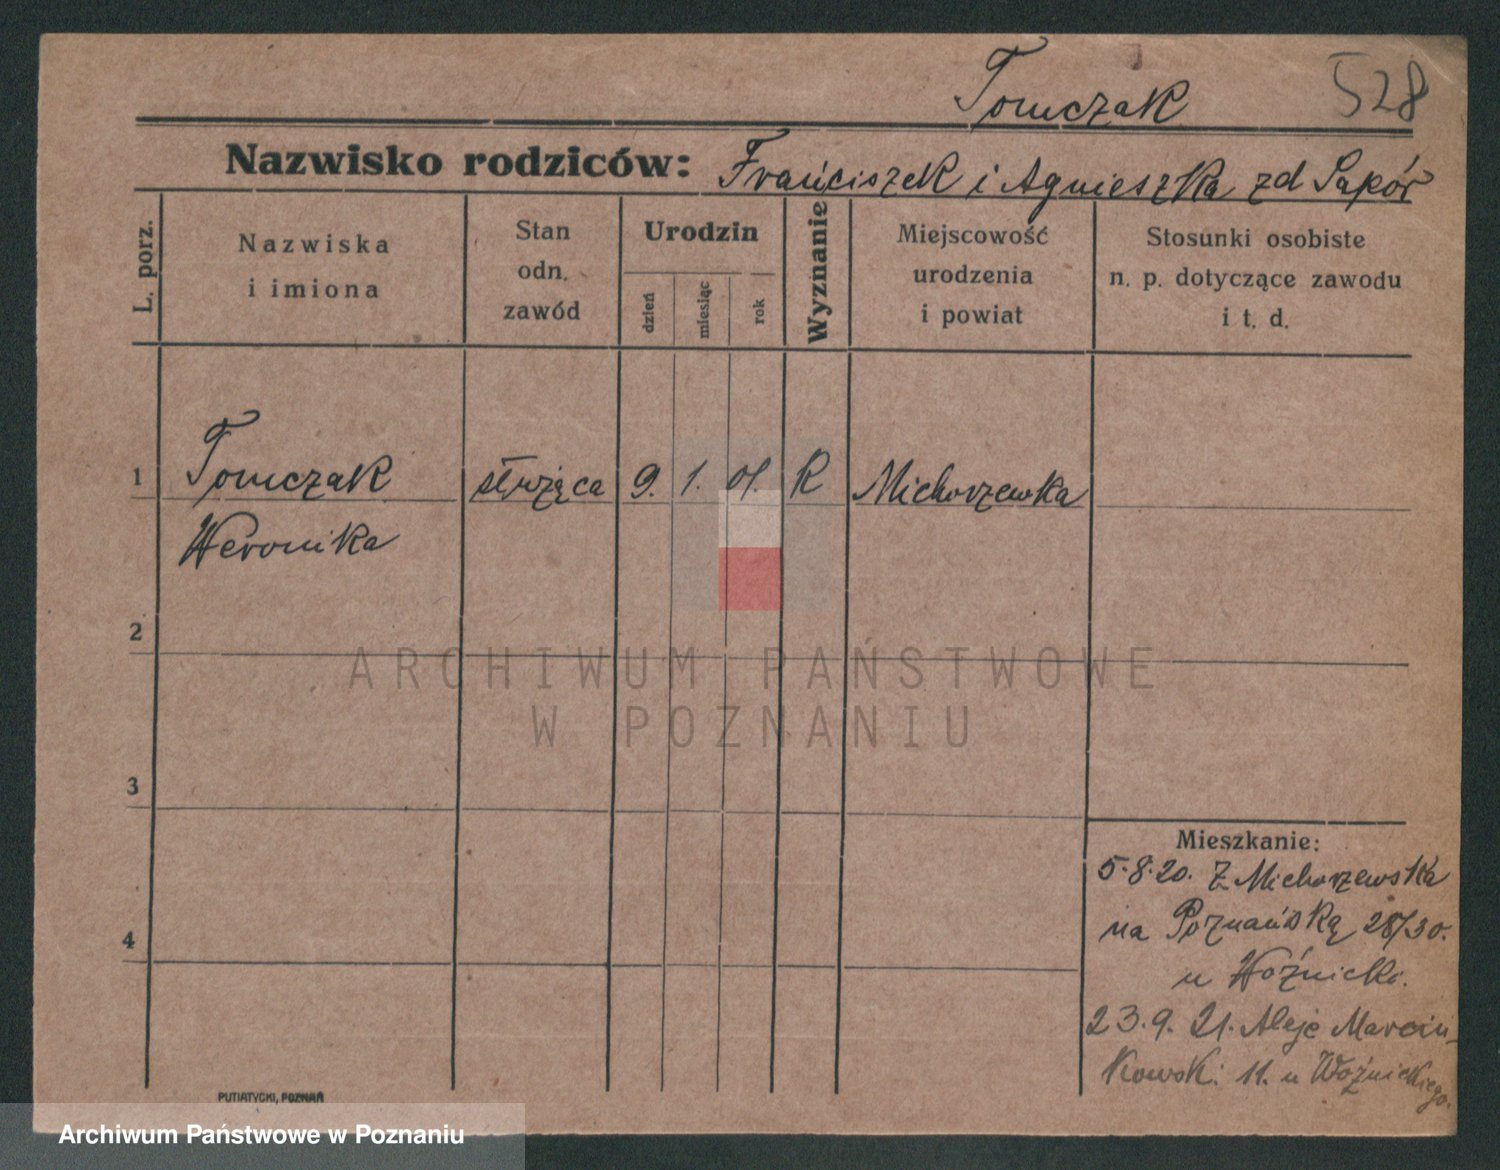 Tomczak 528
Nazwisko rodziców: Frańciszek i Agnieszka zd Sapór
L. porz.
Nazwiska
i imiona
Stan
odn.
zawód
Urodzin
dzień
miesiąc
rok
Wyznanie
Miejscowość
urodzenia
i powiat
Stosunki osobiste
n. p. dotyczące zawodu
i t. d.
1 Tomczak służąca 9. 1. 01. R Michorzewka
Weronika
2
ARCHIWUM PAŃSTWOWE
W POZNANIU
3
4
Mieszkanie:
5.8.20. Z Michorzewska
na Poznańską 28/30.
u Woźnicki.
23.9.21. Aleje Marcin-
kowsk. 11. u Woźnickiego.
PUTIATYCKI, POZNAŃ
Archiwum Państwowe w Poznaniu